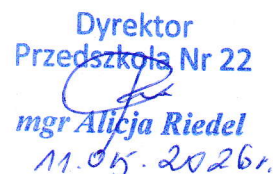 Dyrektor
Przedszkola Nr 22
mgr Alicja Riedel
11.05.2026r.